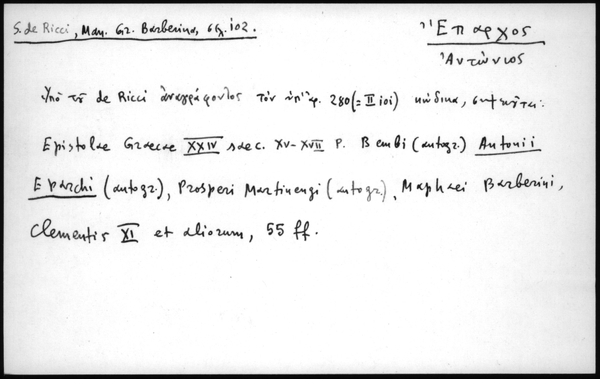 S. de Ricci, Man. Gr. Barberina, σελ. 102.
Ἔπαρχος
Ἀντώνιος
Ὑπὸ τοῦ de Ricci ἀναγράφοντος τὸν ὑπ' ἀρ. 280 (= II 101) κώδικα, σημειοῦται:
Epistolae Graecae XXIV saec. XV-XVII P. Bembi (autogr.) Antonii
Eparchi (autogr.), Prosperi Martinengi (autogr.), Maphaei Barberini,
Clementis XI et aliorum, 55 ff.